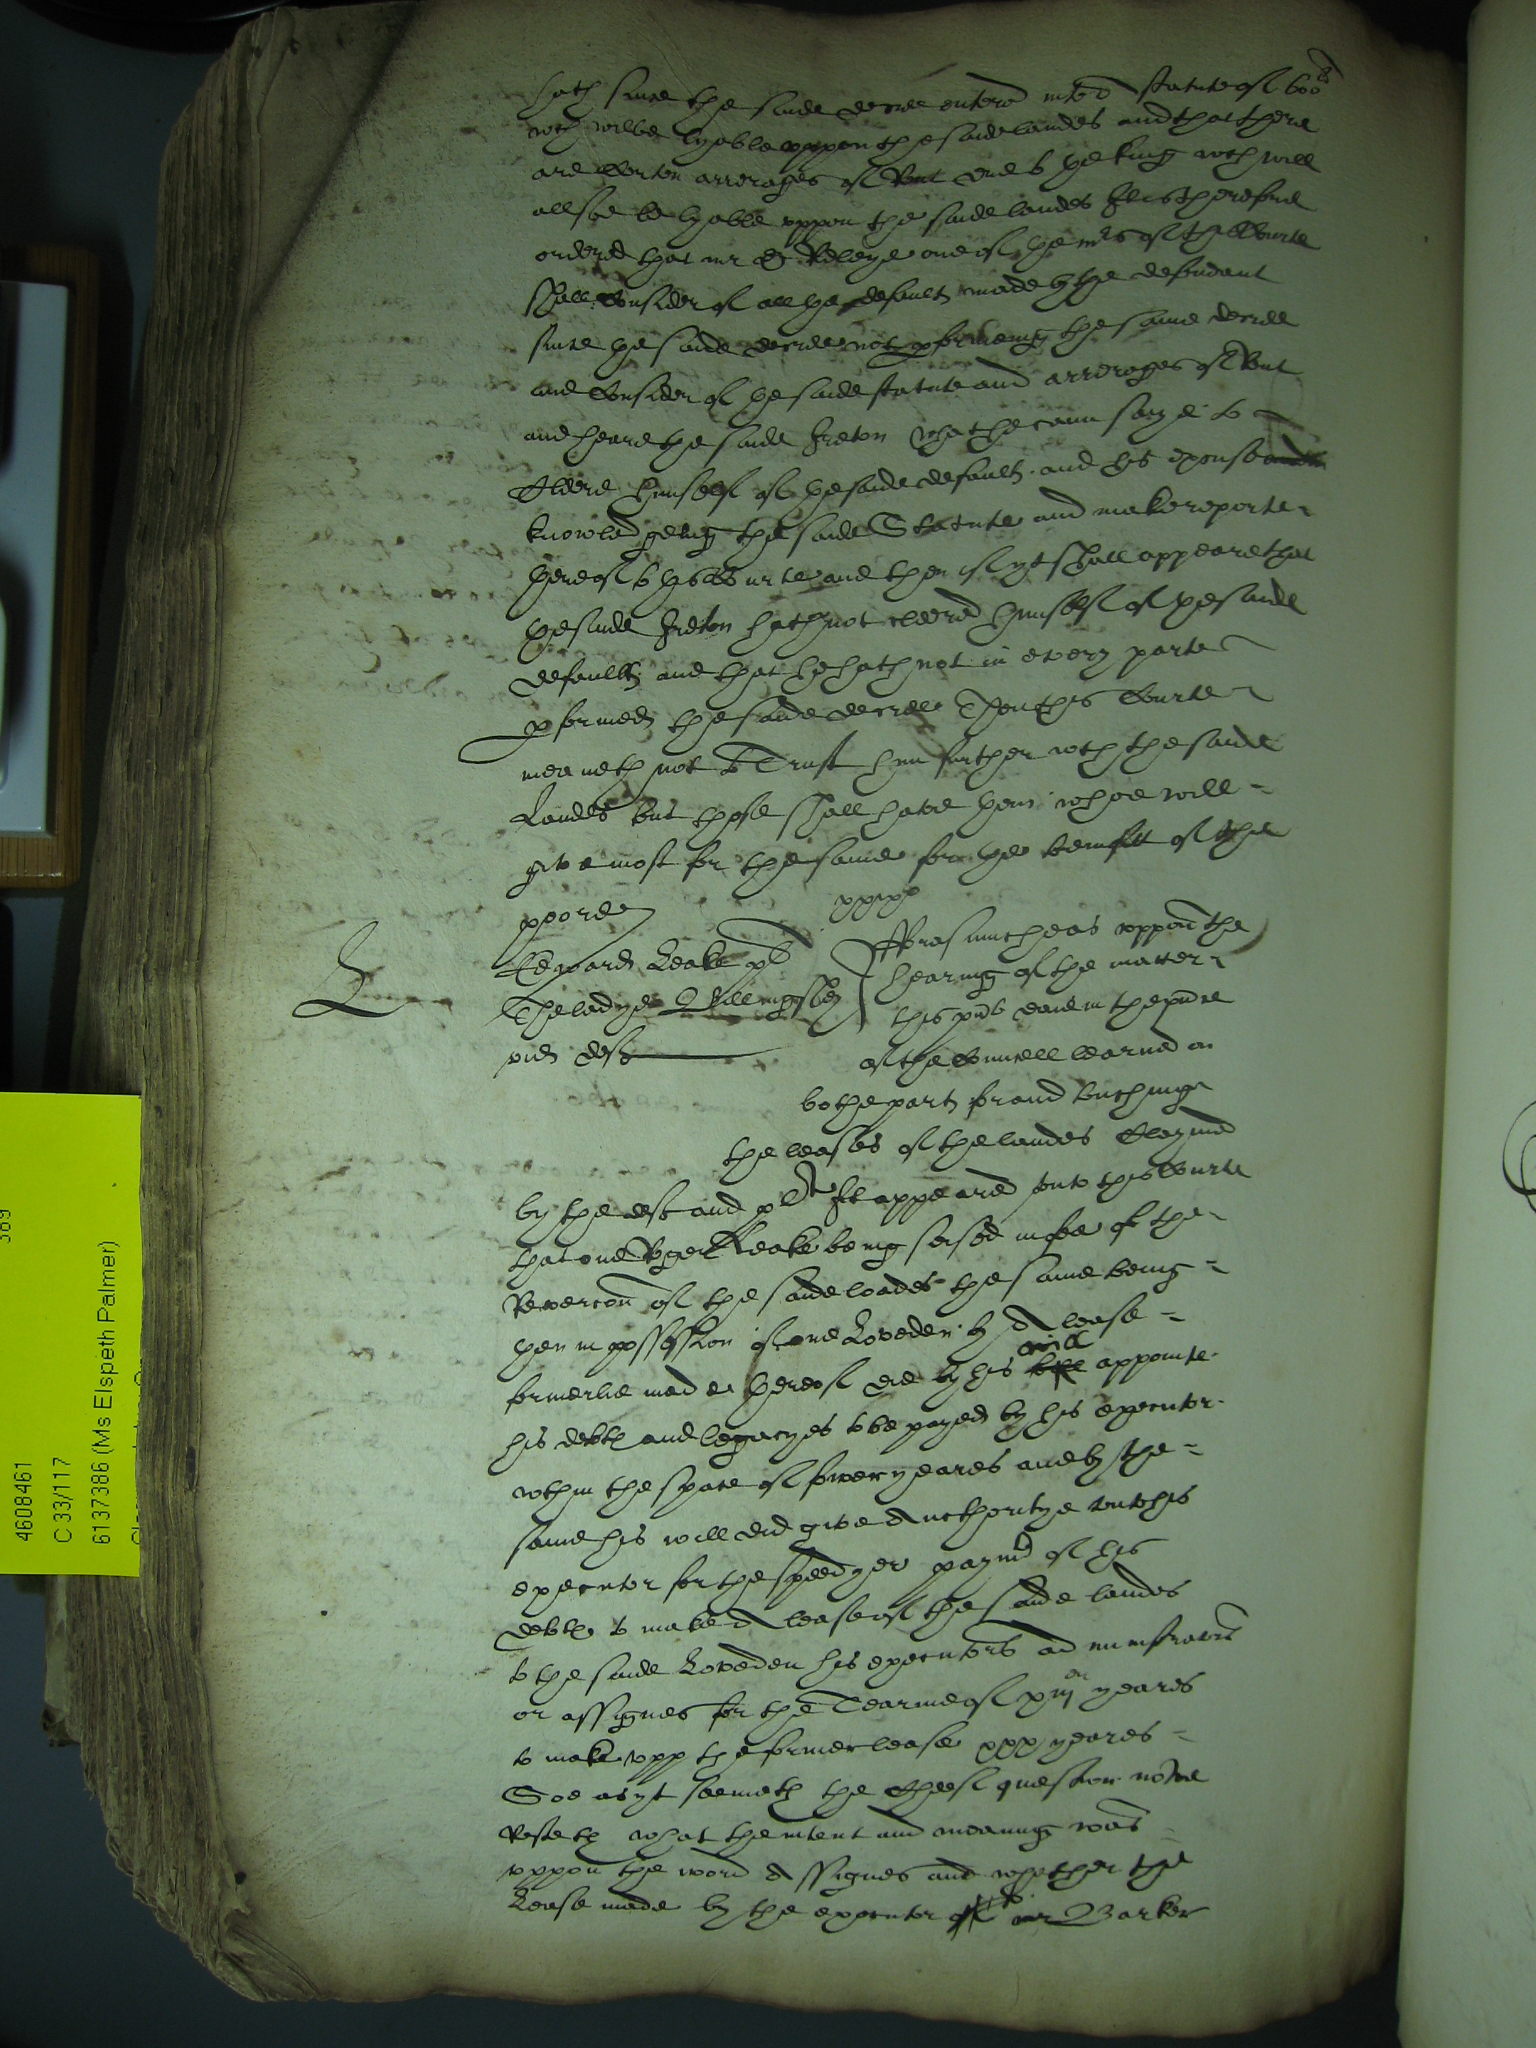 hath since the saide decree entered into a statute of 600li
wch wilbe lyable uppon the saide landes and that there
are certen arrerages of Rent due to ye king wch will
allsoe be lyable uppon the saide landes It is therefore
ordered that mr D: one of ye mrs of the Courte
shall consider of all ye defaults made by the defendant
since ye saide decree not pforming the same decree
and consider of ye saide statute and arrerages of Rent
and heare the saide Ireton what he cann saye to
cleere himself of ye saide defaults and his
knowledgeing the saide Statute and make reporte
yereof to this Courte and then if yt shall appeare that
ye saide Ireton hath not cleered himself of ye saide
defaults and that he hath not in every parte
pformed the saide decree Then this Courte
meaneth not to Trust him further wth the saide
Landes but those shall have yem whoe will
give most for the same for ye benefitt of the
poore
Edward Leake pl
The ladye
vid deft
Forasmuch as uppon the
hearing of the matter
this pnte daie in the pnce
of the Councell learned on
bothe parts for and touching
the leases of the landes claymed
by the deft and plt It appeared unto this Courte
that one Roger Leake being seised in fee of the
Revercon of the saide landes the same being
yen in possession of one Loveden by A lease
formerlie made yereof did by his will appointe
his debts and legacyes to be payed by his executor
wthin the space of fower yeares and by the
same his will did give Aucthoritye unto his
executor for the speedyer paymt of his
debts to make A lease of the saide landes
to the saide Loveden his executors administrators
or assignes for the Tearme of xiiien yeares
to make upp the former lease xxx yeares
Soe as yt seemeth the cheef question nowe
resteth what the intent and meaning was
uppon the word Assignes and whether the
Lease made by the executor to mr Barker
4608461
C 33/117
6137386 (Ms Elspeth Palmer)